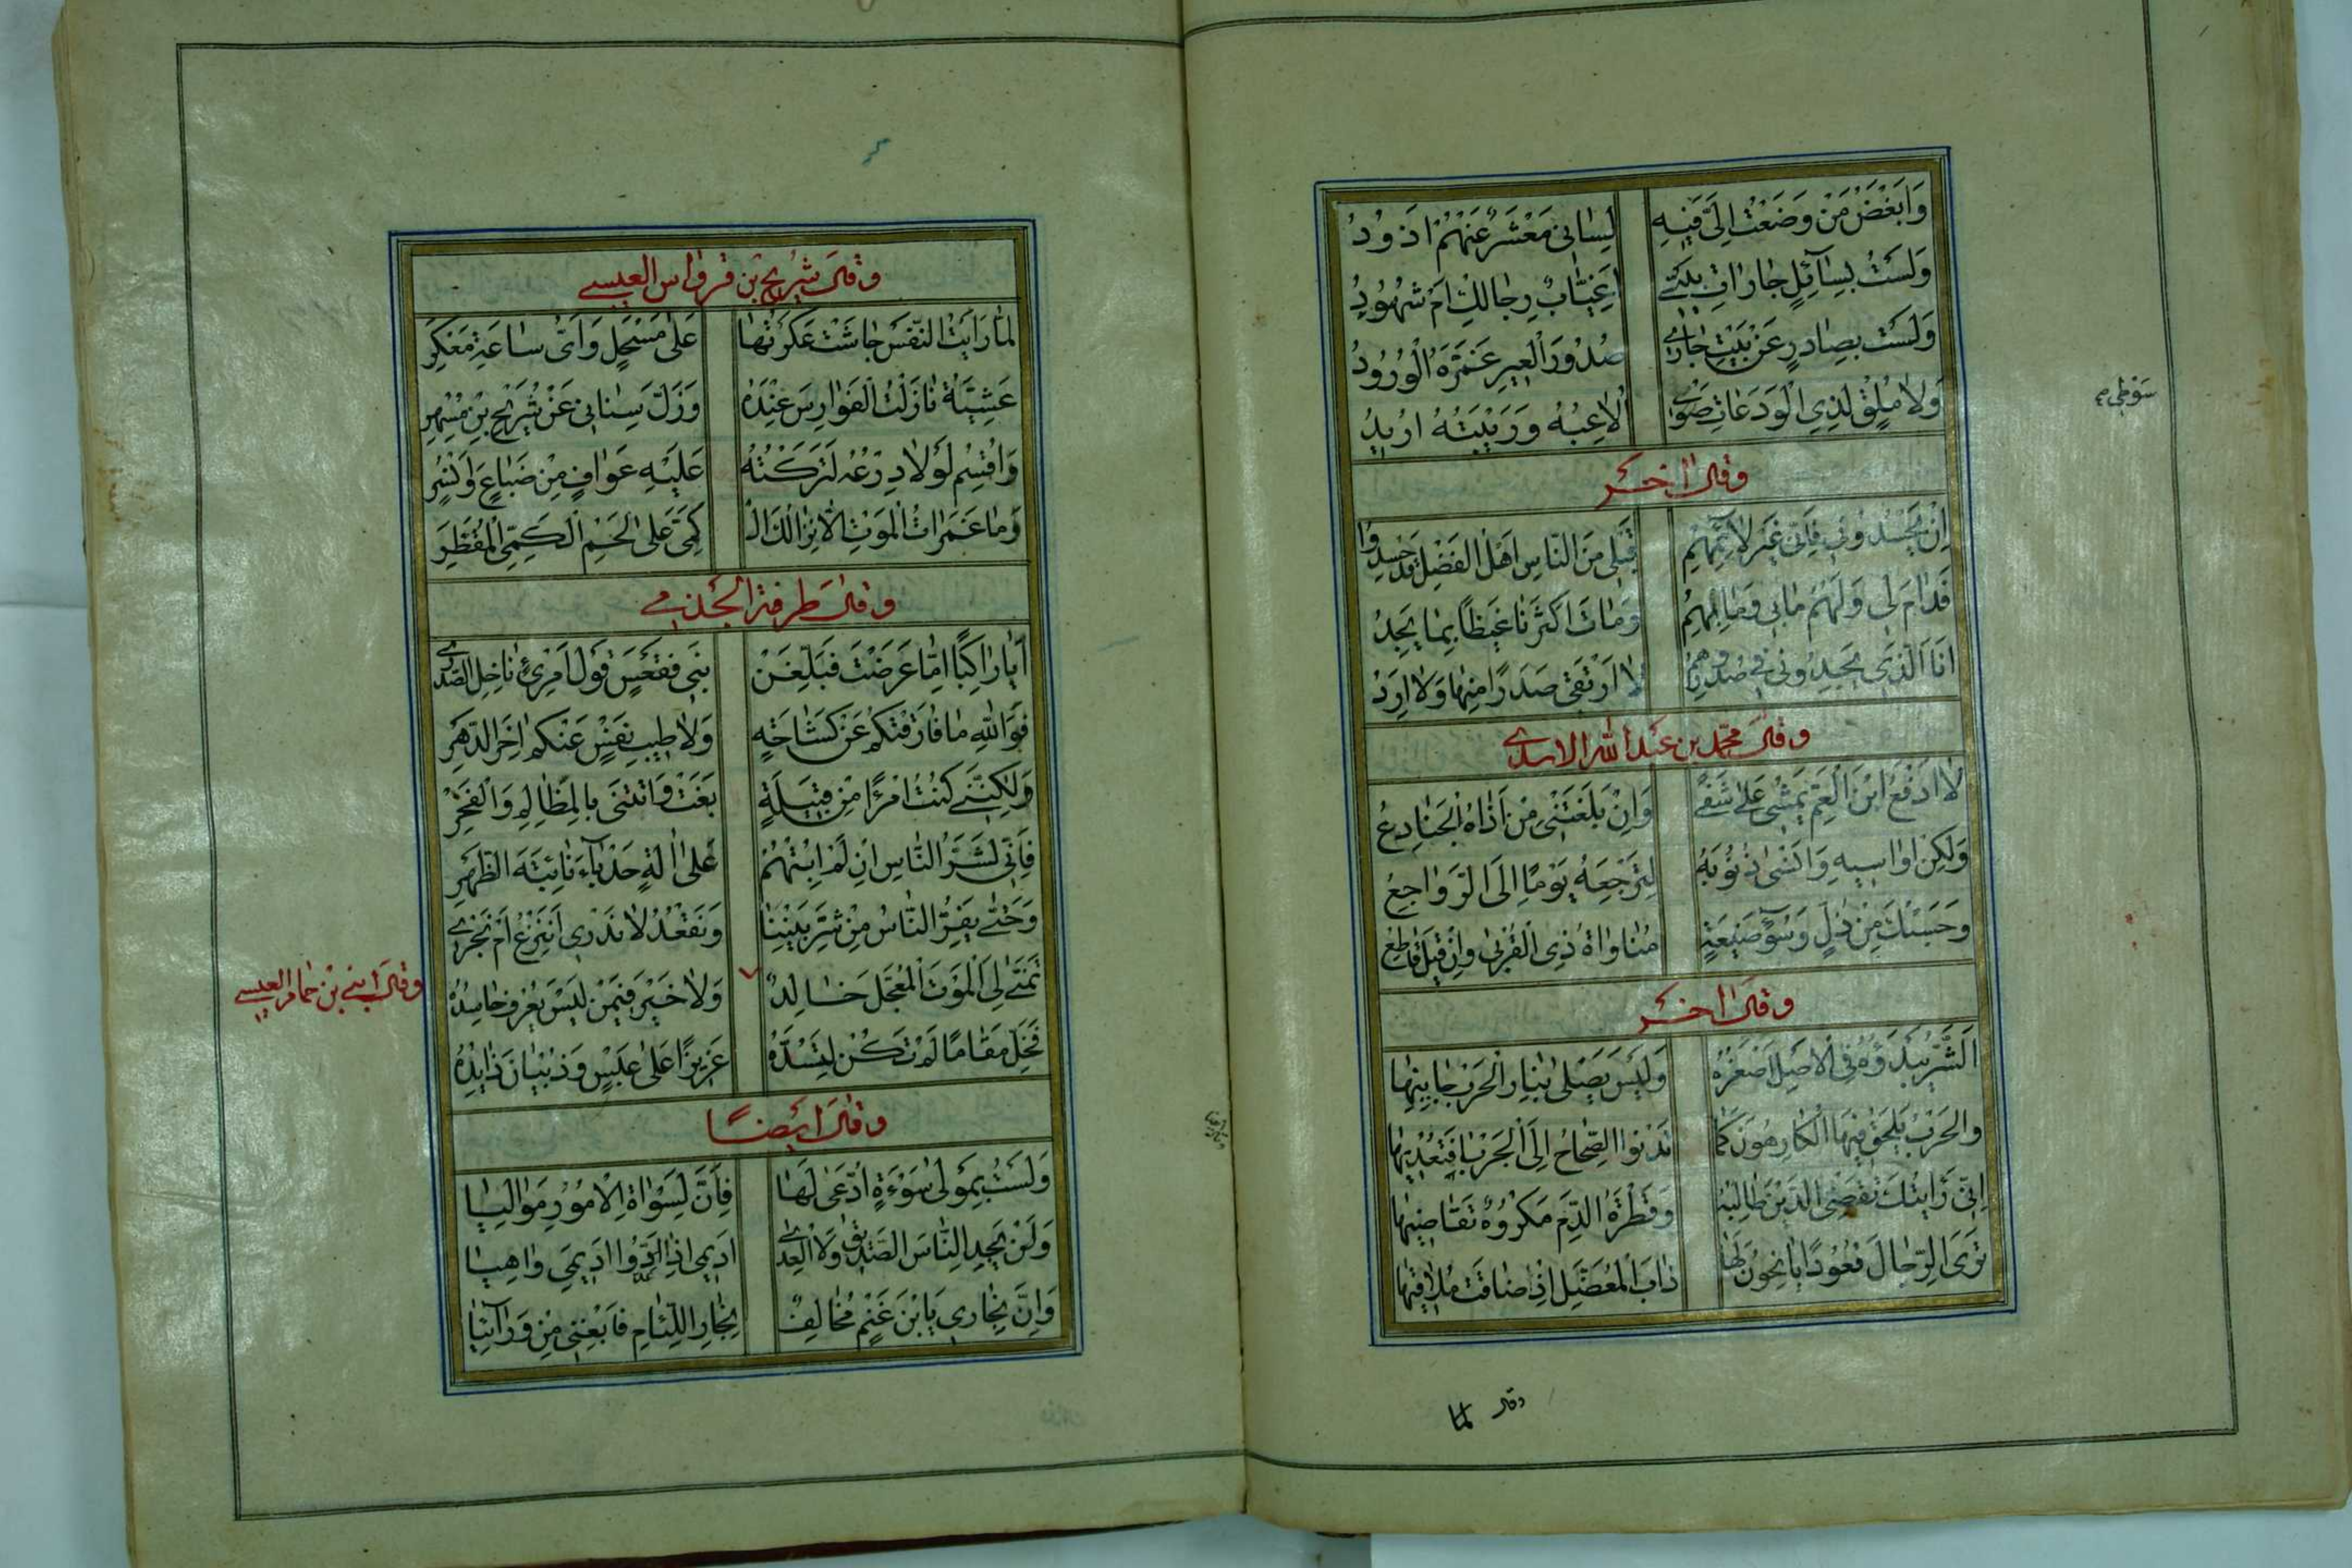 وَاَبْغَضُ مَنْ وَضَعْتُ اِلَیَّ فِیهِ لِسٰانی مَعْشَرٌ عَنْهُمْ اَذُودُ
وَلَسْتُ بِسٰآئِلٍ جٰارٰاتِ بَیْتی اَغُیّٰابٌ رِجٰالُكِ اَمْ شُهُودُ
وَلَسْتُ بِصٰادِرٍ عَنْ بَیْتِ جٰاری صُدُورَ الْعِیرِ غَمَّرَهُ الْوُرُودُ
وَلاٰ مُلْقٍ لِذِی الْوَدَعٰاتِ سَوْطی اُلاٰعِبُهُ وَرَیْبَتَهُ اُرِیدُ
سَوْطی
وقال اخر
اِنْ یَحْسُدُونی فَاِنّی غَیْرُ لاٰئِمِهِمْ قَبْلی مِنَ النّٰاسِ اَهْلُ الْفَضْلِ قَدْ حُسِدُوا
فَدٰامَ لی وَلَهُمْ مٰا بی وَمٰا بِهِمُ وَمٰاتَ اَكْثَرُنٰا غَیْظاً بِمٰا یَجِدُ
اَنَا الَّذی یَجِدُونی فی صُدُورِهِمُ لاٰ اَرْتَقی صَدَرًا مِنْهٰا وَلاٰ اَرِدُ
وقال محمد بن عبد الله الاسدی
لاٰ اَدْفَعُ ابْنَ الْعَمِّ یَمْشی عَلیٰ شَفًی وَاِنْ بَلَغَتْنی مِنْ اَذٰاهُ الْجَنٰادِعُ
وَلٰكِنْ اُوٰاسیهِ وَاَنْسیٰ ذُنُوبَهُ لِتَرْجِعَهُ یَوْمًا اِلَیَّ الرَّوٰاجِعُ
وَحَسْبُكَ مِنْ ذُلٍّ وَسُوءِ صَنیعَةٍ مُنٰاوٰاةُ ذِی الْقُرْبیٰ وَاِنْ قیلَ قٰاطِعُ
وقال اخر
اَلشَّرُّ یَبْدَؤُهُ فِی الْاَصْلِ اَصْغَرُهُ وَلَیْسَ یَصْلیٰ بِنٰارِ الْحَرْبِ جٰانیهٰا
وَالْحَرْبُ یَلْحَقُ فیهَا الْكٰارِهُونَ كَمٰا تَدْنُو الصِّحٰاحُ اِلَی الْجَرْبیٰ فَتُعْدیهٰا
اِنّی رَاَیْتُكَ تَقْضِی الدَّیْنَ طٰالِبَهُ وَقَطْرَةُ الدَّمِ مَكْرُوهٌ تَقٰاضیهٰا
تَرَی الرِّجٰالَ قُعُودًا یَأنِحُونَ لَهٰا دَأبَ الْمُعَضِّلِ اِذْ ضٰاقَتْ مَلاٰقیهٰا
وقال لما
وقال شریح بن قرواش العبسی
لَمّٰا رَاَیْتُ النَّفْسَ جٰاشَتْ عَكَرْتُهٰا عَلیٰ مَسْحَلٍ وَاَیُّ سٰاعَةِ مَعْكَرِ
عَشِیَّةَ نٰازَلْتُ الْفَوٰارِسَ عِنْدَهُ وَزَلَّ سِنٰانی عَنْ شُرَیْحِ بْنِ مُسْهِرِ
وَاُقْسِمُ لَوْلاٰ دِرْعُهُ لَتَرَكْتُهُ عَلَیْهِ عَوٰافٍ مِنْ ضِبٰاعٍ وَاَنْسُرِ
وَمٰا غَمَرٰاتُ الْمَوْتِ اِلّاٰ نِزٰالُكَ الْ كَمِیَّ عَلیٰ لَحْمِ الْكَمِیِّ الْمُقَطَّرِ
وقال طرفة الجذیمی
اَیٰا رٰاكِبًا اِمّٰا عَرَضْتَ فَبَلِّغَنْ بَنی فَقْعَسٍ قَوْلَ امْرِئٍ نٰاخِلِ الصَّدْرِ
فَوَاللهِ مٰا فٰارَقْتُكُمْ عَنْ كَشٰاحَةٍ وَلاٰ طیبِ نَفْسٍ عَنْكُمُ اٰخِرَ الدَّهْرِ
وَلٰكِنَّنی كُنْتُ امْرَءًا مِنْ قَبیلَةٍ بَغَتْ وَاَتَتْنی بِالْمَظٰالِمِ وَالْفَخْرِ
فَاِنّی لَشَرُّ النّٰاسِ اِنْ لَمْ اُبِتْهُمُ عَلیٰ اٰلَةٍ حَدْبٰاءَ نٰابِیَةِ الظَّهْرِ
وَحَتّیٰ یَفِرَّ النّٰاسُ مِنْ شَرِّ بَیْنِنٰا وَنَقْعُدُ لاٰ نَدْری اَنَنْزِعُ اَمْ نَجْری
وقال ابی بن حمام العبسی
تَمَنّیٰ لِیَ الْمَوْتَ الْمُعَجَّلَ خٰالِدٌ وَلاٰ خَیْرَ فیمَنْ لَیْسَ یُعْرَفُ حٰاسِدُهُ
فَخَلِّ مَقٰامًا لَمْ تَكُنْ لِتَسُدَّهُ عَزیزًا عَلیٰ عَبْسٍ وَذُبْیٰانَ ذٰایِدُهُ
وقال ایضًا
وَلَسْتُ بِمَوْلیٰ سَوْءَةٍ اُدَّعیٰ لَهٰا فَاِنَّ لِسَوْاٰةِ الْاُمُورِ مَوٰالِیٰا
وَلَنْ یَجِدَ النّٰاسُ الصَّدیقُ وَلاَ الْعِدیٰ اَدیمی اِذٰا عَدُّوا اَدیمِیَ وٰاهِیٰا
وَاِنَّ نِجٰاری یَا بْنَ غَنْمٍ مُخٰالِفٌ نِجٰارَ اللِّئٰامِ فَابْغِنی مِنْ وَرٰآئِیٰا